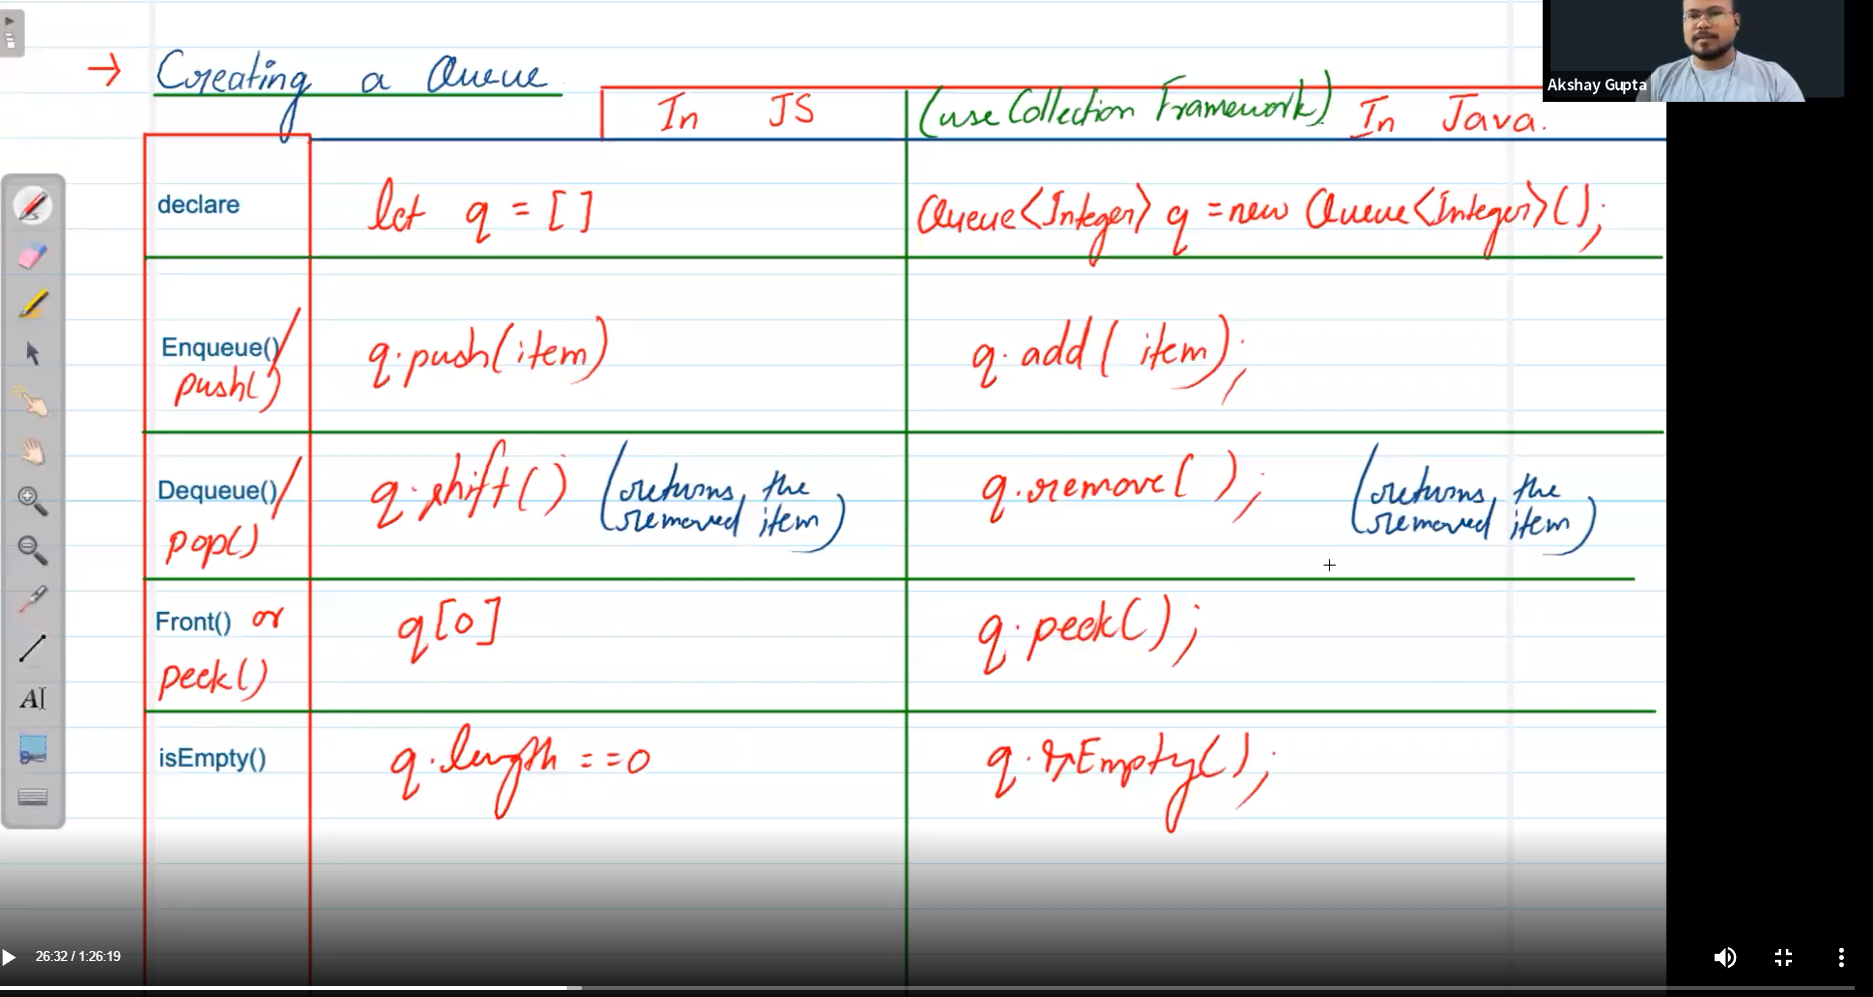 Akshay Gupta
→ Creating a Queue
In JS
(use Collection Framework) In Java.
declare
let q = []
Queue<Integer> q = new Queue<Integer>();
Enqueue()/
push()
q.push(item)
q.add( item);
Dequeue()/
pop()
q.shift() (returns, the
removed item)
q.remove( ); (returns, the
removed item)
Front() or
peek()
q[0]
q.peek();
isEmpty()
q.length ==0
q.isEmpty();
AI
26:32 / 1:26:19